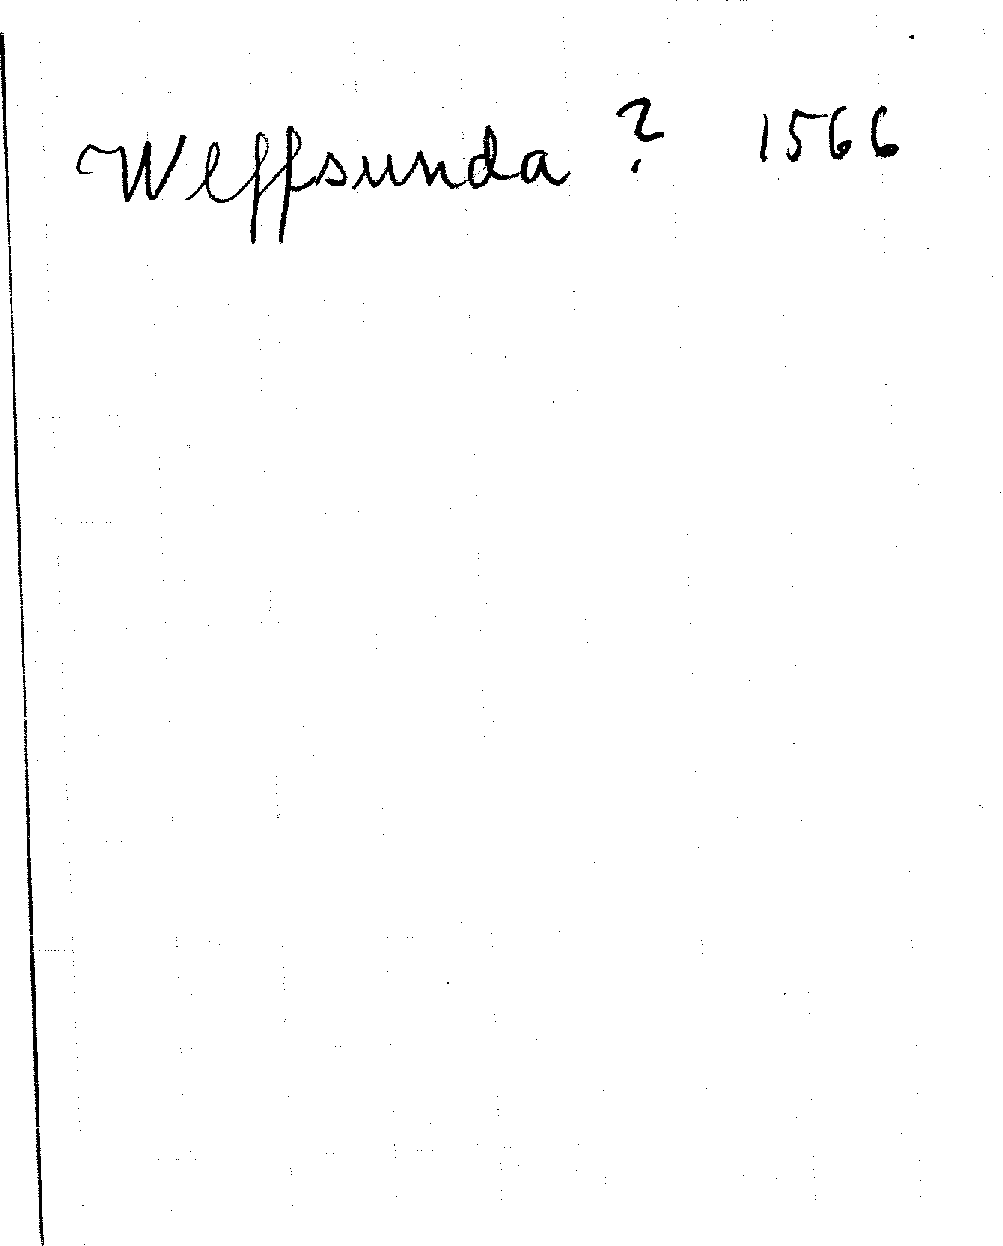 Wlffsunda ? 1566